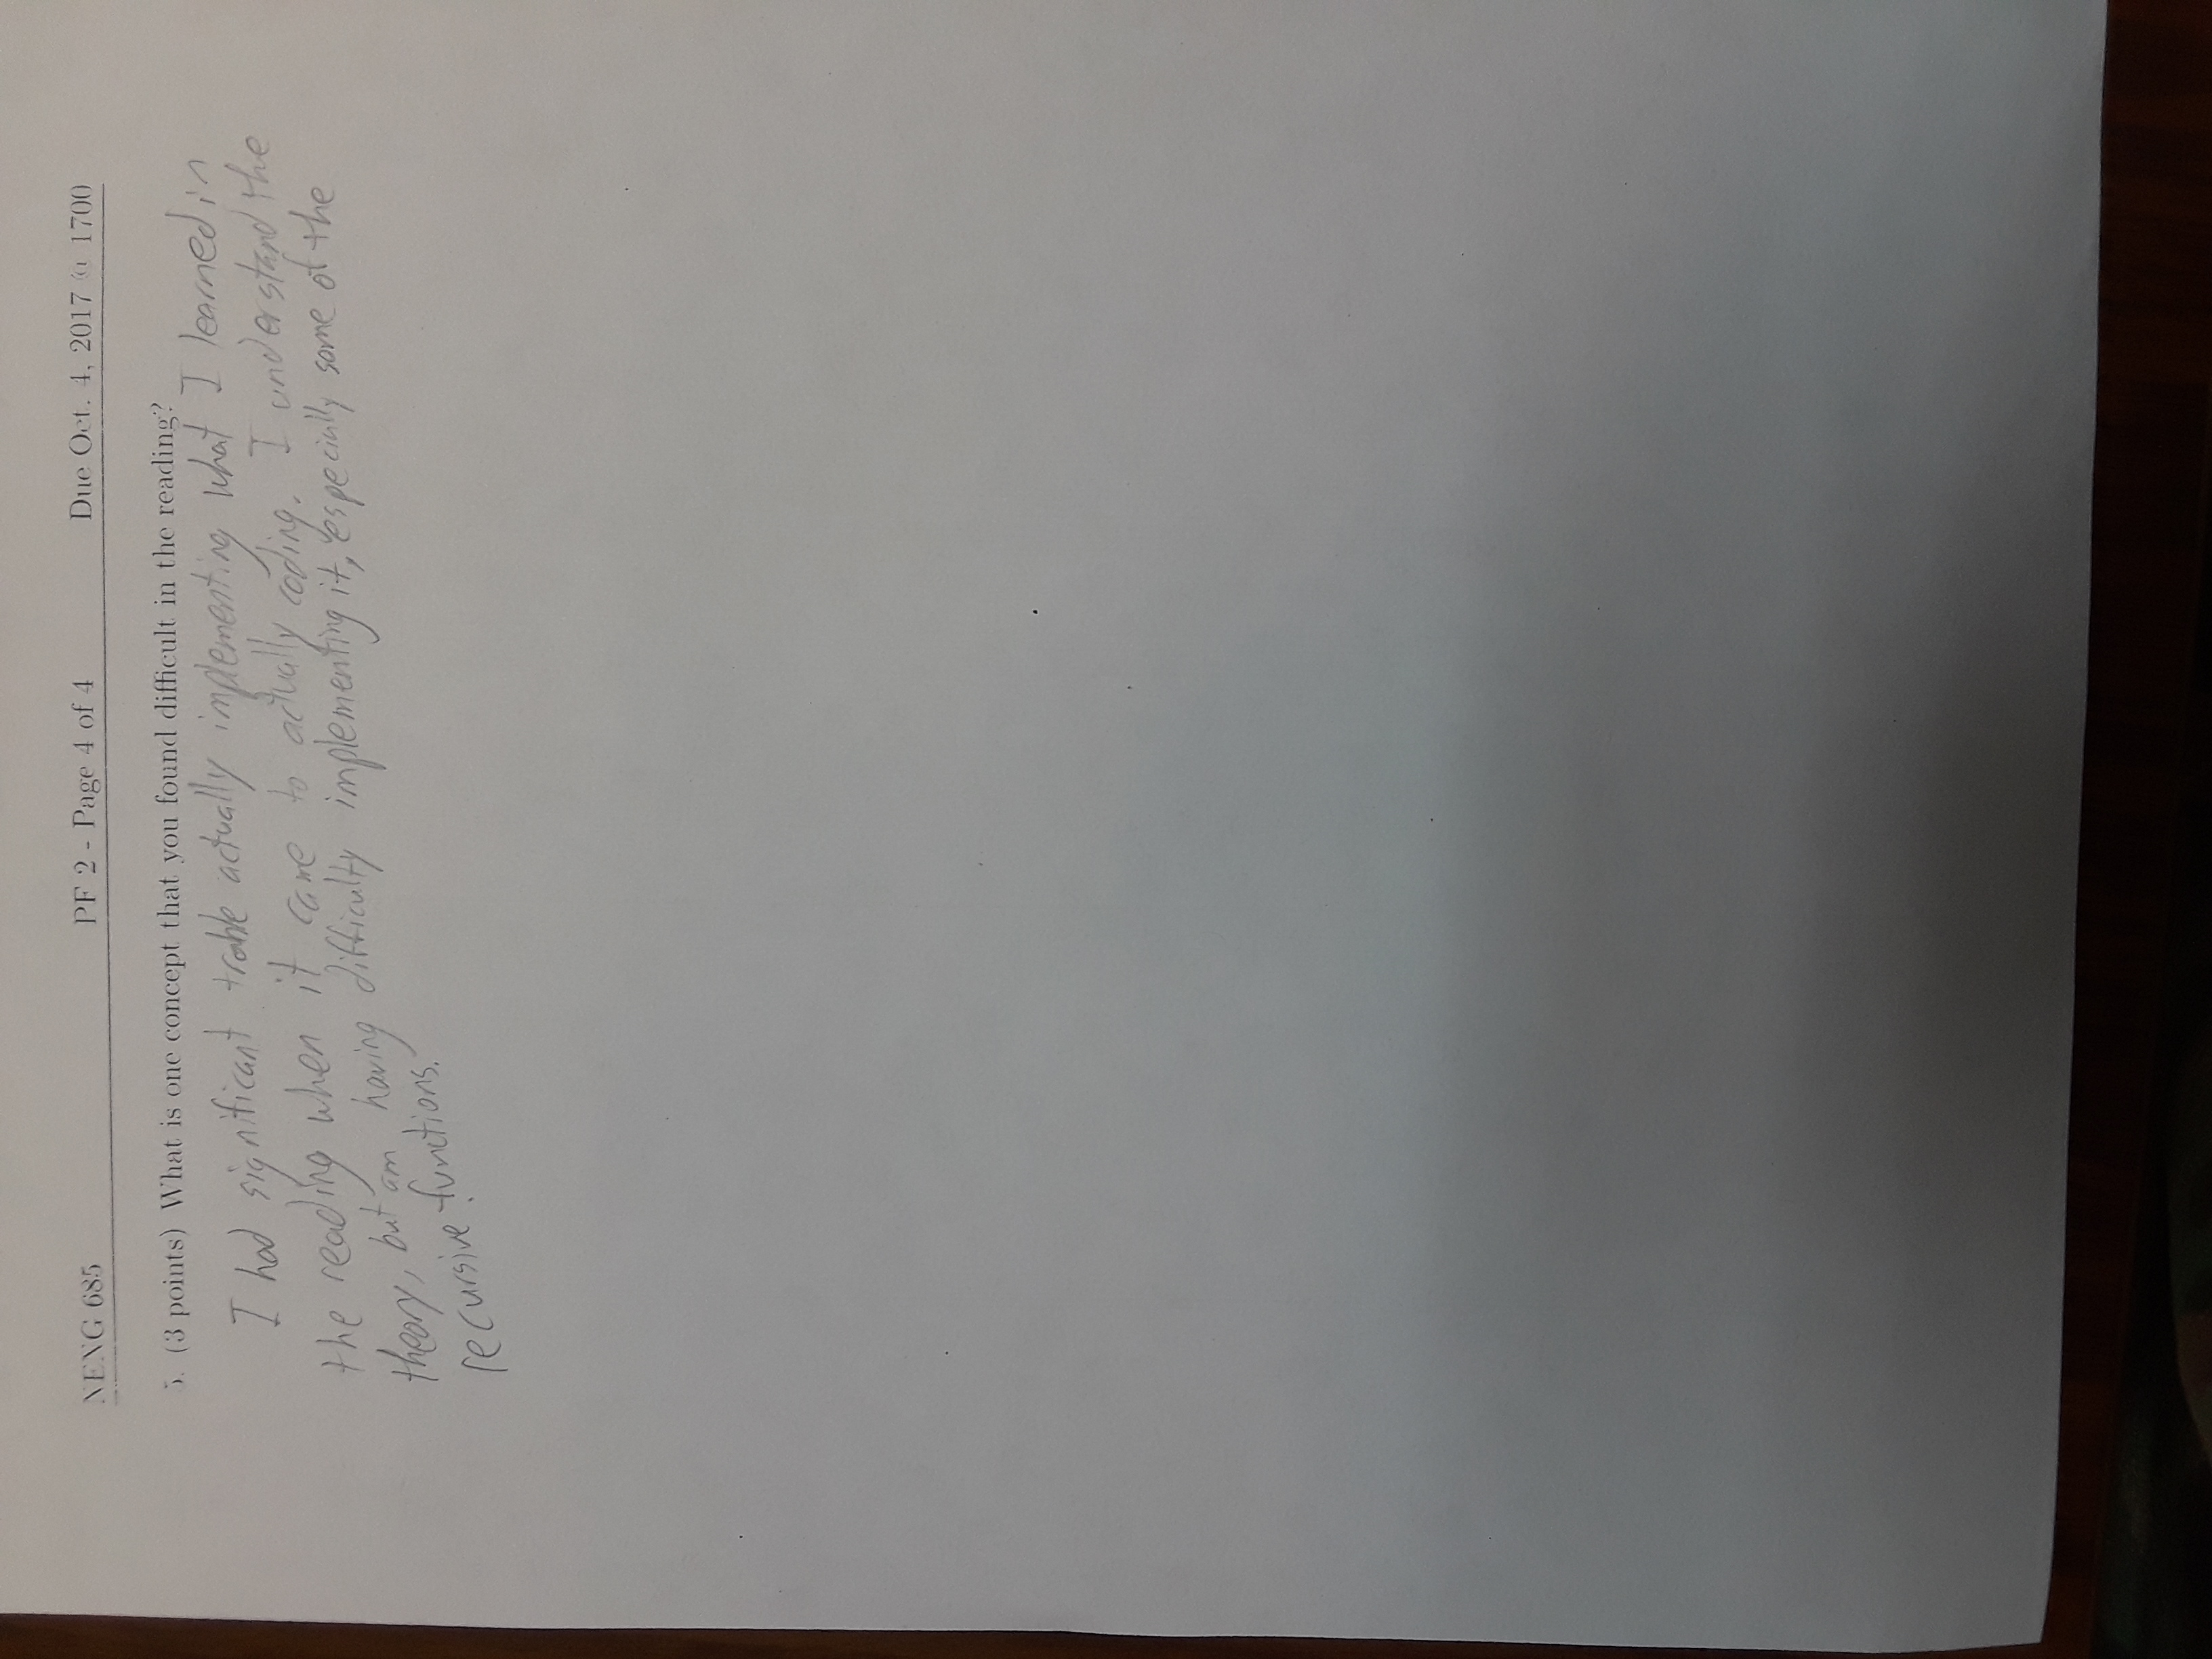 NENG 685 PF 2 - Page 4 of 4 Due Oct. 4, 2017 @ 1700
5. (3 points) What is one concept that you found difficult in the reading?
I had significant troble actually implementing what I learned in
the reading when it came to actually coding. I understand the
theory, but am having difficulty implementing it, especially some of the
recursive functions.